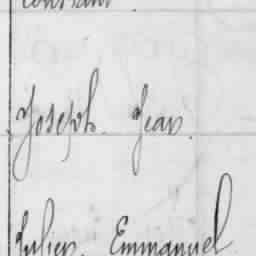 Constant.
Joseph. Jean.
Julien. Emmanuel